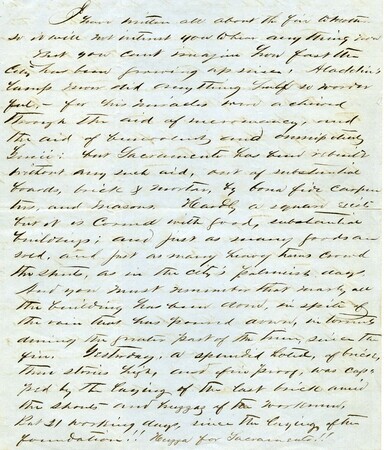 I have written all about the fire to Mother
so it will not interest you to hear anything more
But you can't imagine how fast the
City has been growing up since! Aladdin's
Lamp never did anything half so wonder
ful - for his miracles were achieved
through the aid of necromancy, and
the aid of and
Genii: but Sacramento has been rebuilt
without any such aid, out of substantial
boards, brick & mortar, by bona fide carpen
ters, and masons. Hardly a square
but it is covered with good, substantial
buildings; and just as many goods are
sold, and just as many heavy teams crowd
the streets, as in the city's palmiest days
And you must remember that nearly all
the building has been done, in spite of
the rain that has poured down, in torrents
during the greater part of the time, since the
fire. Yesterday, a splendid hotel, of brick,
three stories high, and fire proof, was cap-
ped by the laying of the last brick amid
the shouts and huzzas of the workmen,
But 21 working days, since the laying of the
foundation!!! Huzza for Sacramento!!